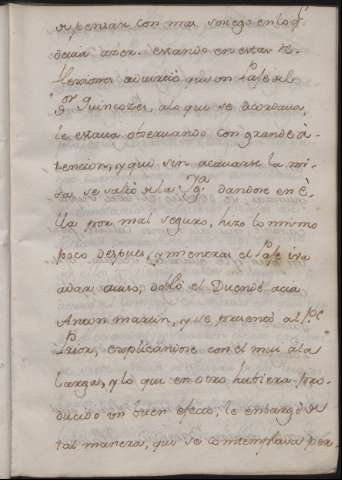 a pensar con mas sosiego en lo q.
devia aser. estando en estas re
flexiones advirtió que un Paje del
S.or Quincozes, a lo que se acordava,
le estava observando con grande a-
tencion, y que sin acavarse la mi-
sa, se salió de la Yg.a dandose en è-
lla por mal seguro, hizo lo mismo
poco despues, y mientras el Paje iva
adar aviso, dobló el Duende acia
Anton martin, y se presentó al P.e
Prior, explicandose con el mui a la
larga, y lo que en otro hubiera pro-
ducido un buen efecto, le embargó de
tal manera, que se contemplava per-